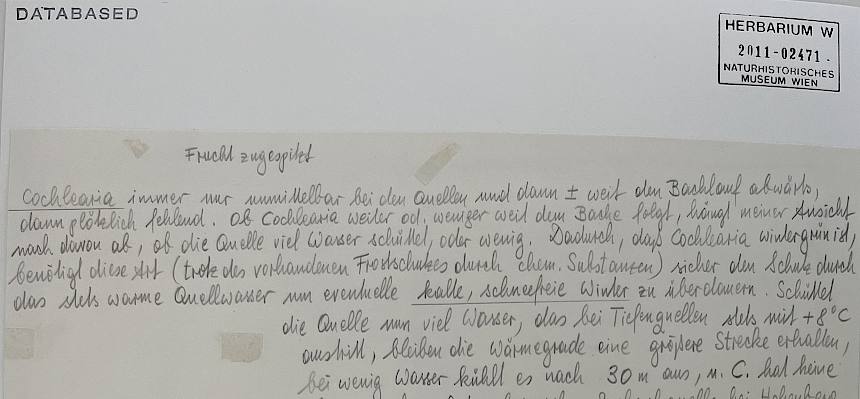 DATABASED
HERBARIUM W
2011-02471.
NATURHISTORISCHES
MUSEUM WIEN
Frucht zugespitzt
Cochlearia immer nur unmittelbar bei den Quellen und dann ± weit den Bachlauf abwärts,
dann plötzlich fehlend. Ob Cochlearia weiter od. weniger weit dem Bache folgt, hängt meiner Ansicht
nach davon ab, ob die Quelle viel Wasser schüttet, oder wenig. Dadurch, daß Cochlearia wintergrün ist,
benötigt diese Art (trotz des vorhandenen Frostschutzes durch chem. Substanzen) sicher den Schutz durch
das stets warme Quellwasser um eventuelle kalte, schneefreie Winter zu überdauern. Schüttet
die Quelle nun viel Wasser, das bei Tiefenquellen stets mit +8°C
austritt, bleiben die Wärmegrade eine größere Strecke erhalten,
bei wenig Wasser kühlt es nach 30 m aus, u. C. hat keine